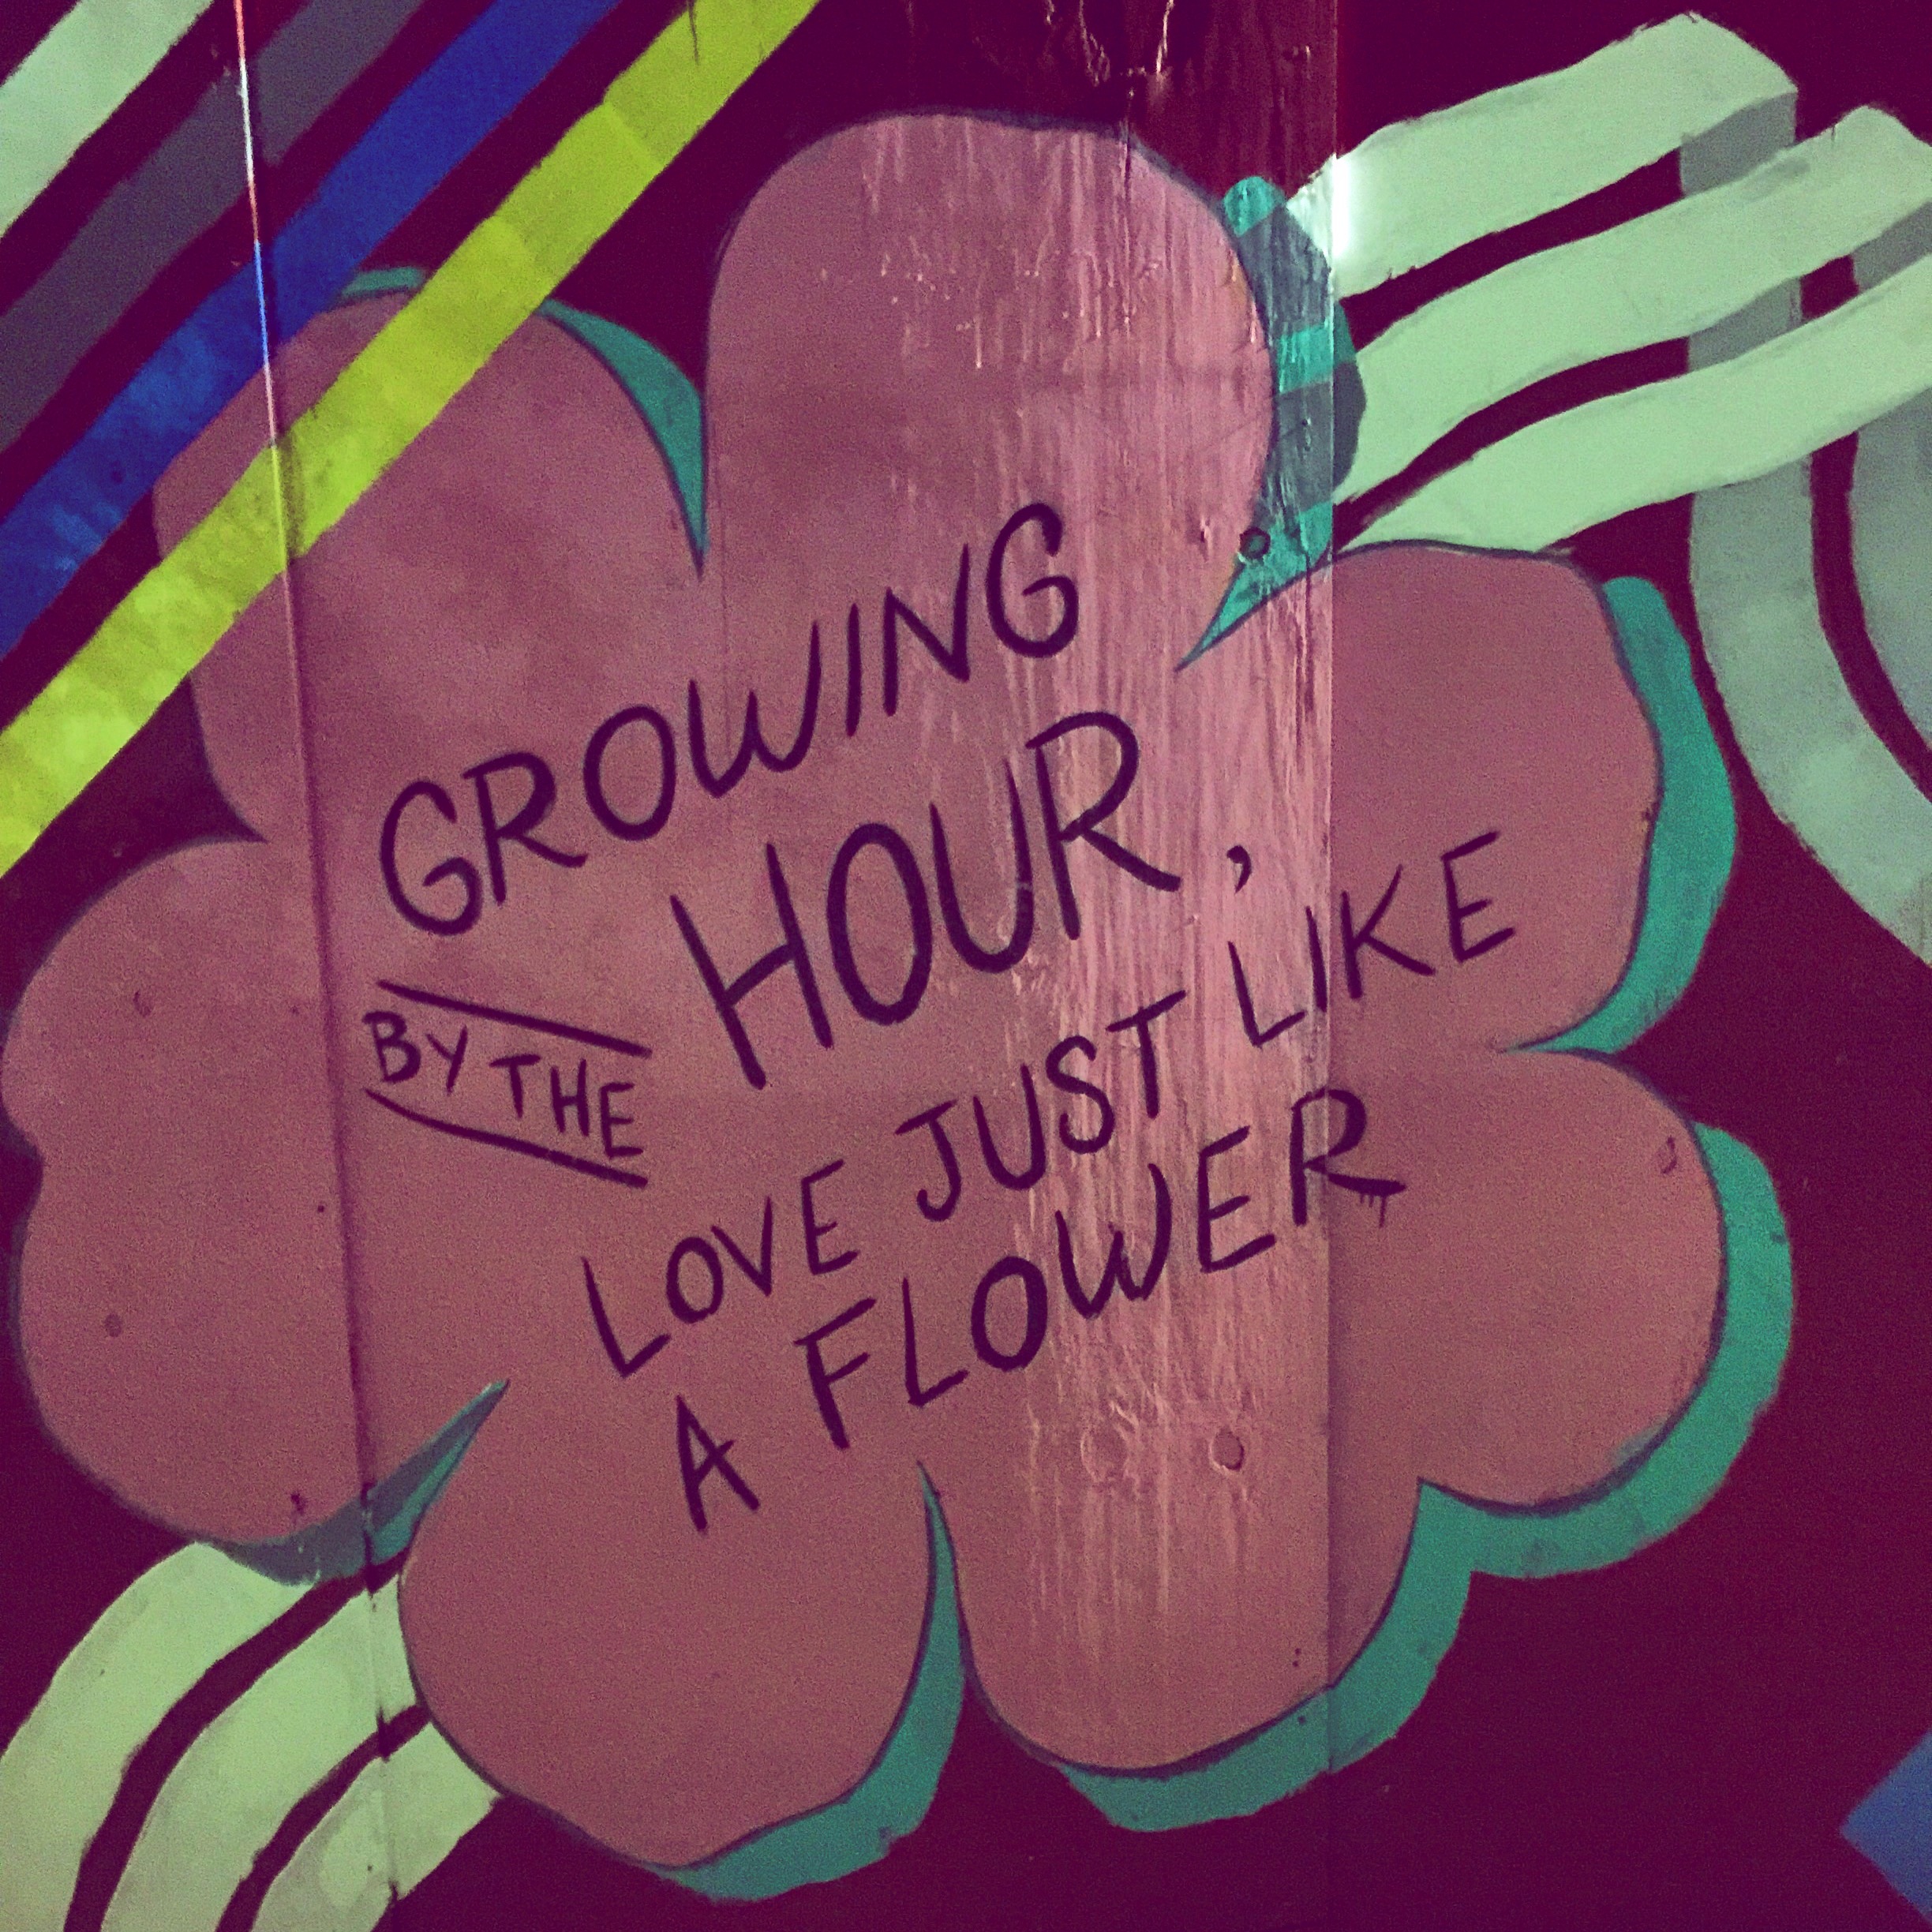 GROWING
BY THE HOUR,
LOVE JUST LIKE
A FLOWER